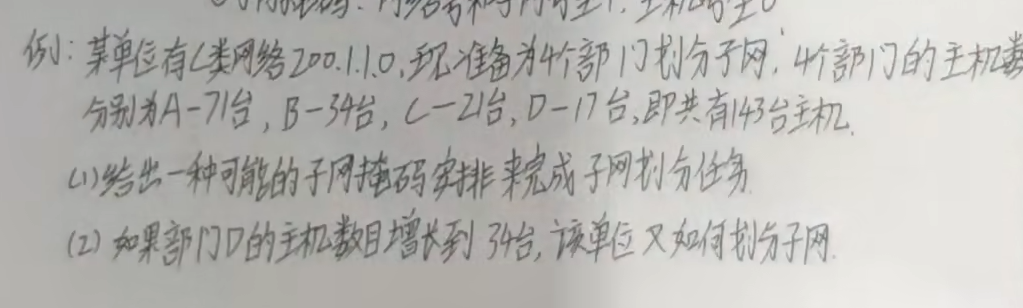 例：某单位有C类网络200.1.1.0，现准备为4个部门划分子网，4个部门的主机数
分别为A-71台，B-34台，C-21台，D-17台，即共有143台主机.
(1)给出一种可能的子网掩码安排来完成子网划分任务.
(2)如果部门D的主机数目增长到34台，该单位又如何划分子网.